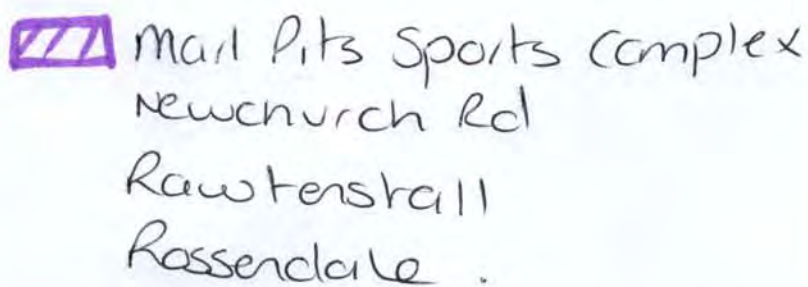 Marl Pits Sports Complex
Newchurch Rd
Rawtenstall
Rossendale.